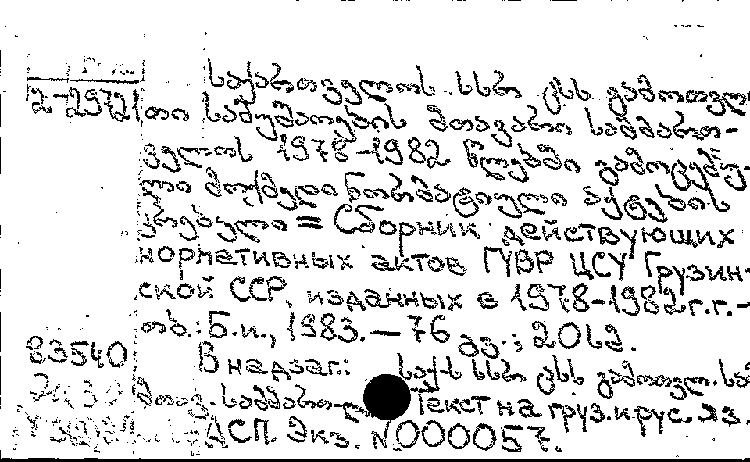 საქართველოს სსრ ცსს გამოთვლი
2-2972 თი სამუშაოების მთავარი სამმართ-
ველოს 1978-1982 წლებში გამოცემუ-
ლი მოქმედი ნორმატიული აქტების
კრებული = Сборник действующих
нормативных актов ГУВР ЦСУ Грузин-
ской ССР, изданных в 1978-1982г.г.-
თბ.: Б.и., 1983. — 76 გვ.; 20 სმ.
83540 В надзаг.: საქ-ს სსრ ცსს გამოთვლ. სამ
მთავ. სამმართ-ლო Текст на груз. и рус. яз.
ДСП. Экз. N000057.